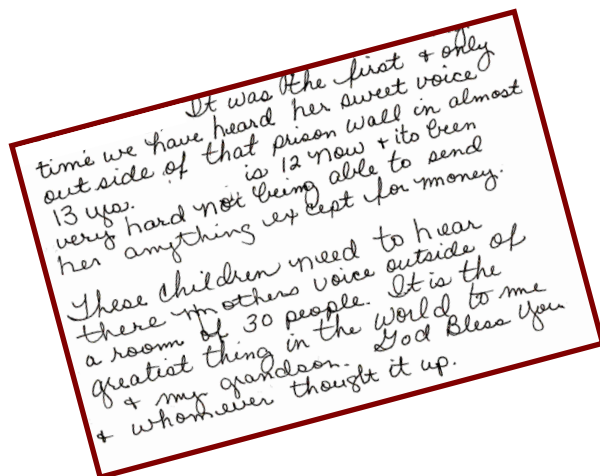 It was the first & only
time we have heard her sweet voice
outside of that prison wall in almost
13 yrs. is 12 now & its been
very hard not being able to send
her anything except for money.
These children need to hear
there mothers voice outside of
a room of 30 people. It is the
greatist thing in the world to me
& my grandson. God Bless you
& whomever thought it up.